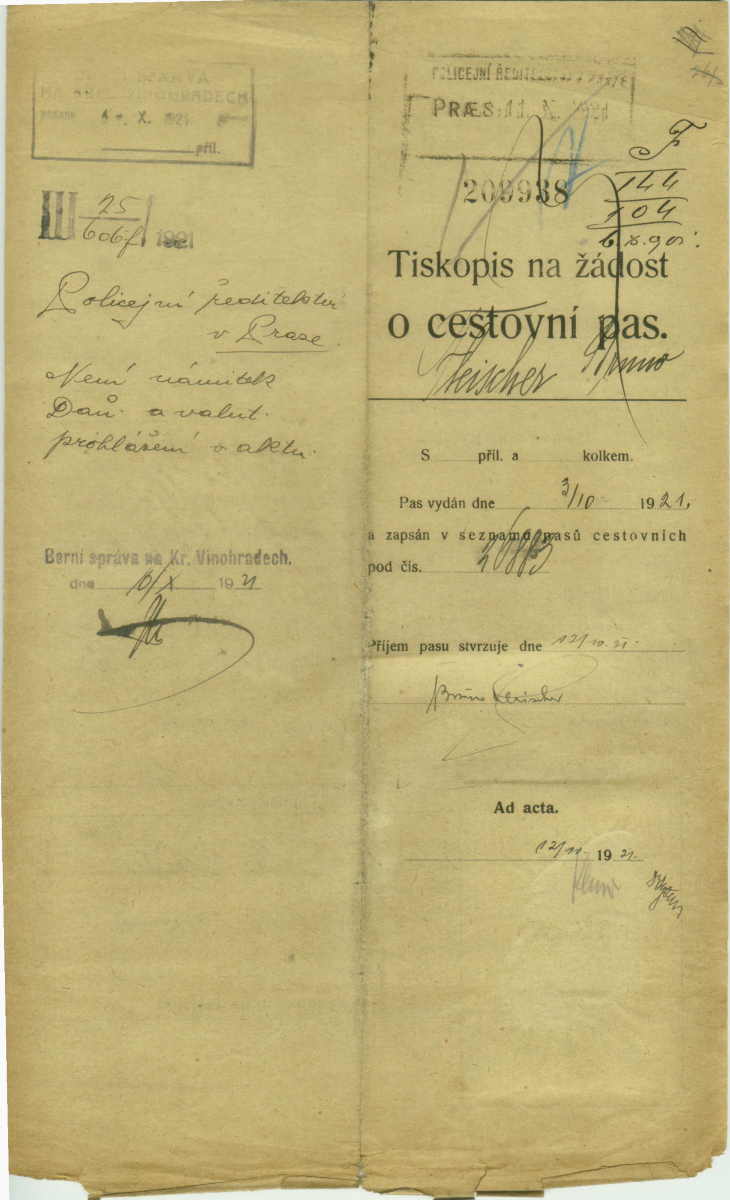 NA KRÁL. VINOHRADECH
X. 1921
příl.
III 25 1921
Policejní ředitelství
v Praze.
Není námitek
Daň. a valut.
prohlášení v aktu.
Berní správa na Kr. Vinohradech.
dne 6/X 1921
POLICEJNÍ ŘEDITELSTVÍ V PRAZE
PRÆS. 11. X. 1921
209938
F
144
104
6.X.901.
Tiskopis na žádost
o cestovní pas.
Fleischer Bruno
S příl. a kolkem.
Pas vydán dne 3/10 1921.
a zapsán v seznamu pasů cestovních
pod čís.
Příjem pasu stvrzuje dne 12/10.21.
Bruno Fleischer
Ad acta.
12/11. 1921.